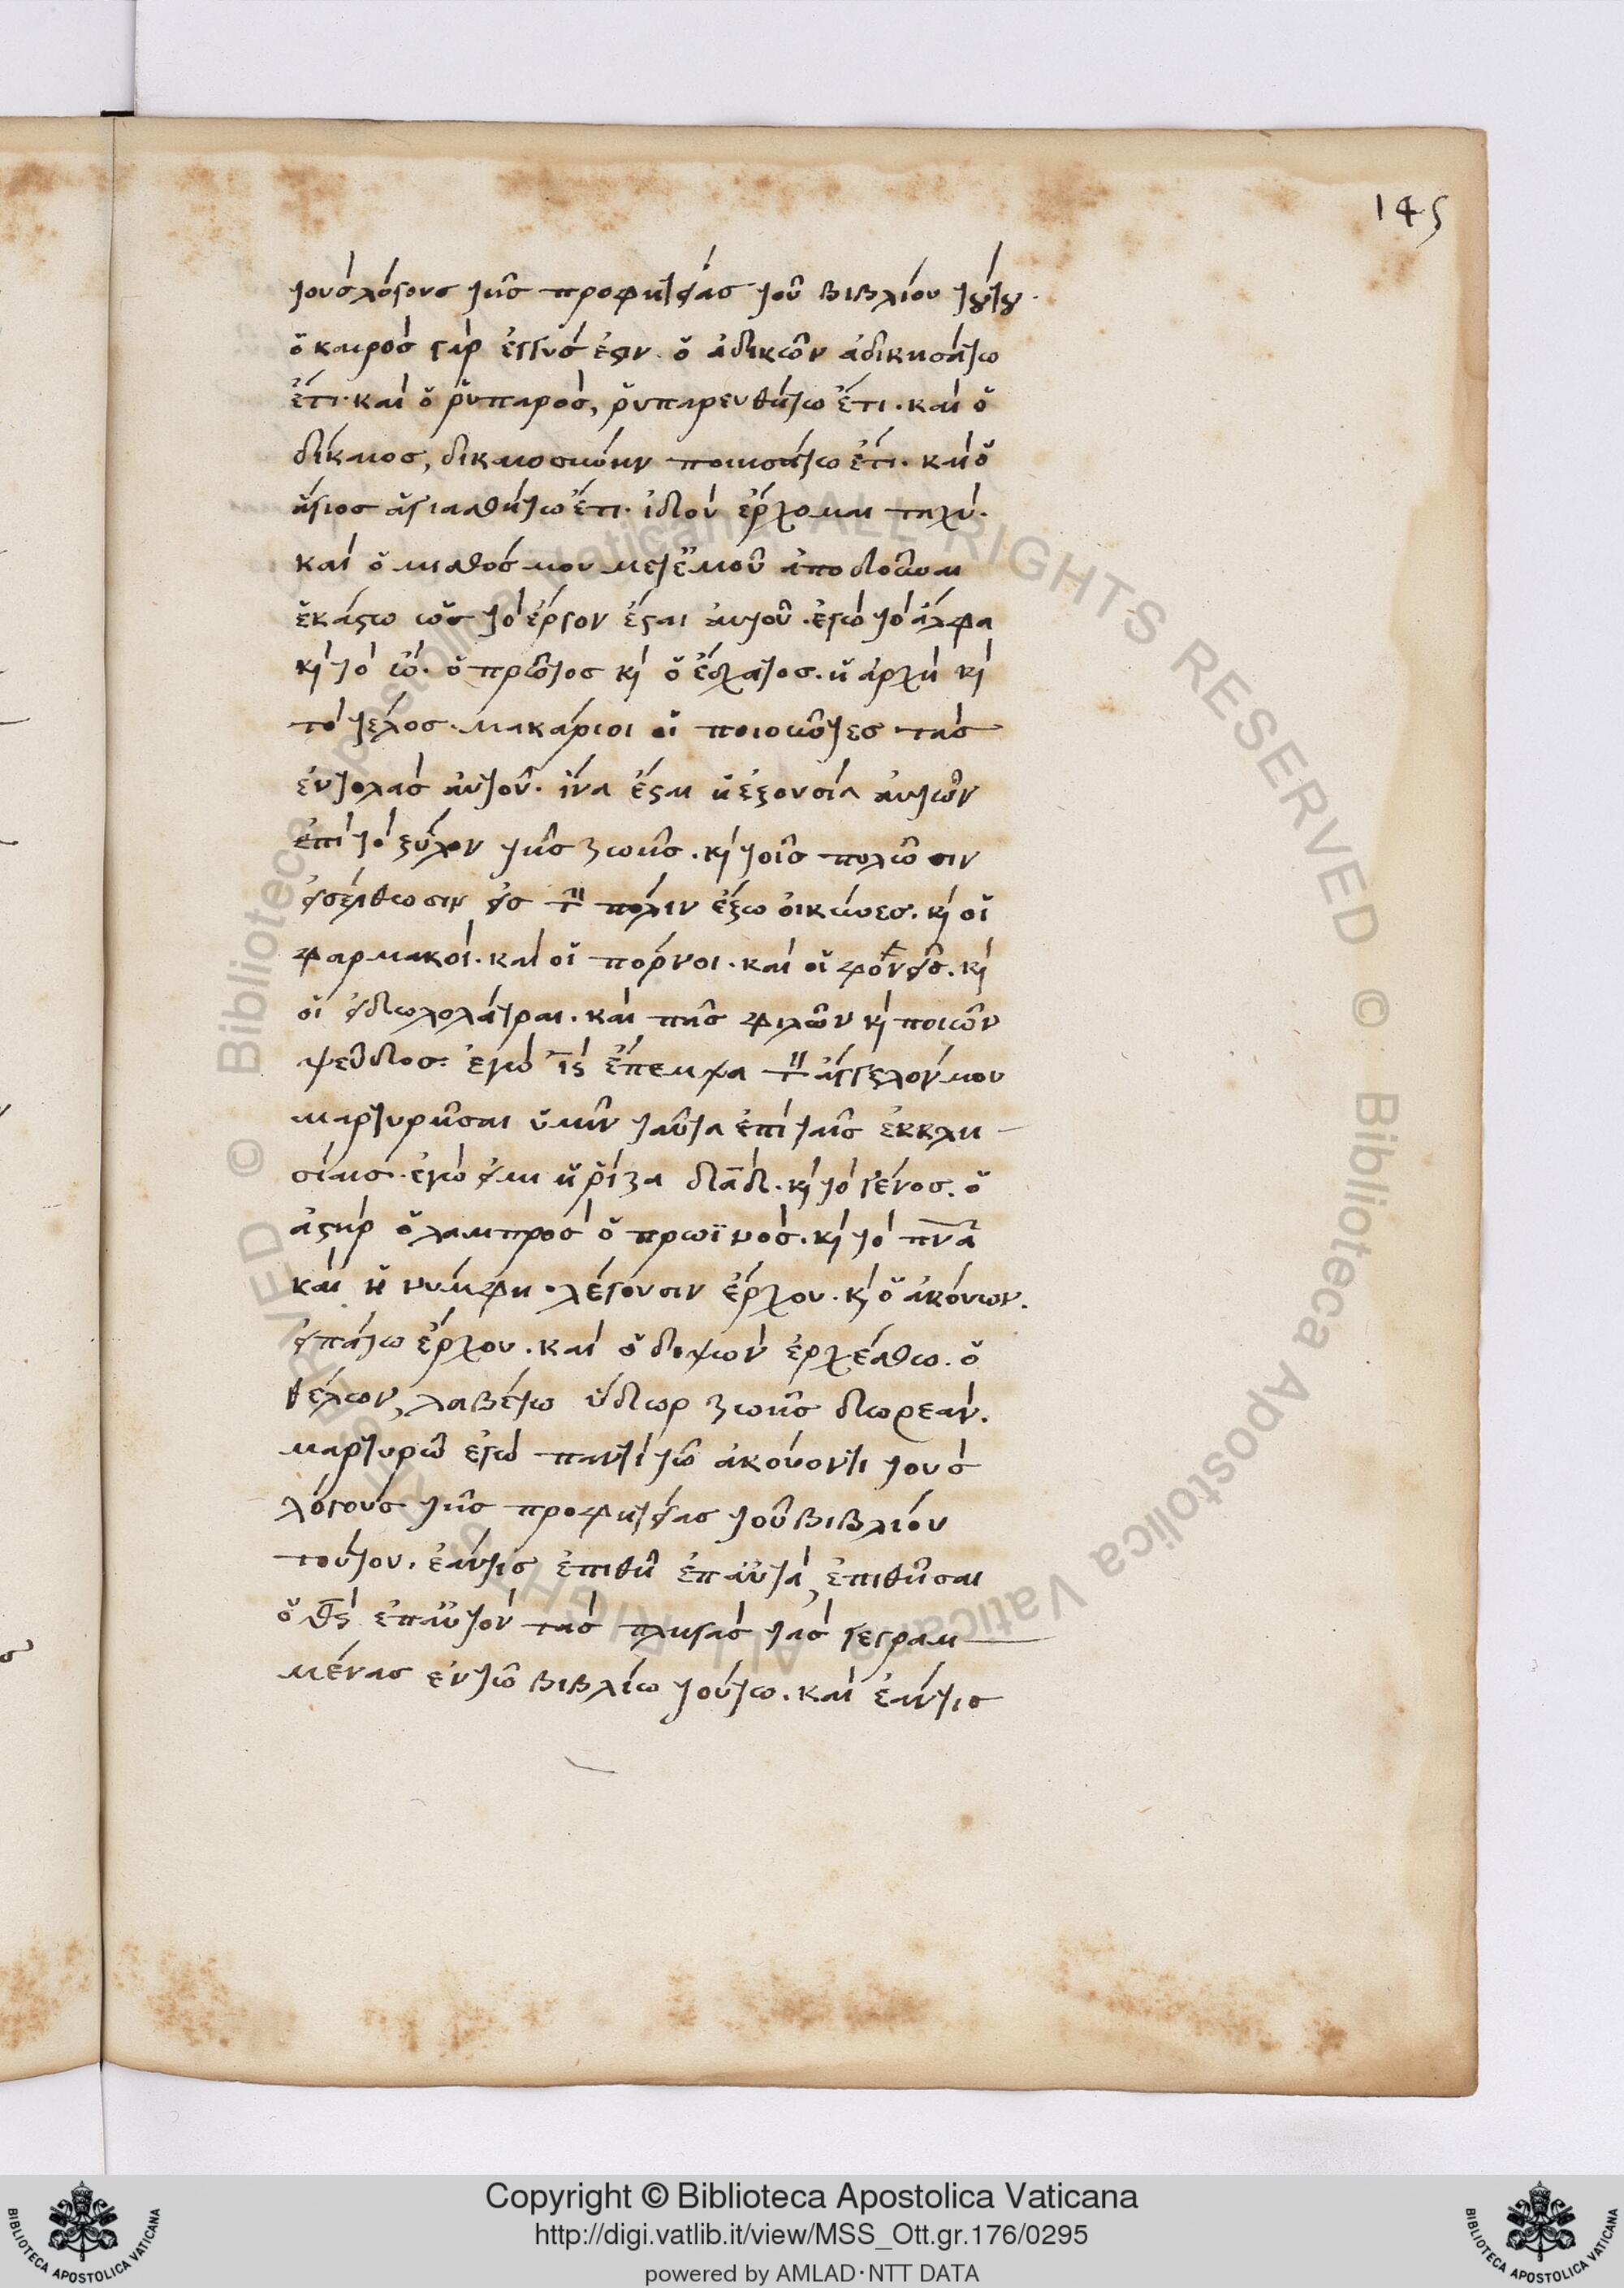 145
τοὺς λόγους τῆς προφητείας τοῦ βιβλίου τούτου.
ὁ καιρὸς γὰρ ἐγγύς ἐστιν. ὁ ἀδικῶν ἀδικησάτω
ἔτι. καὶ ὁ ῥυπαρὸς, ῥυπαρευθήτω ἔτι. καὶ ὁ
δίκαιος, δικαιοσύνην ποιησάτω ἔτι. καὶ ὁ
ἅγιος ἁγιασθήτω ἔτι. ἰδοὺ ἔρχομαι ταχύ.
καὶ ὁ μισθός μου μετ' ἐμοῦ ἀποδοῦναι
ἑκάστω ὡς τὸ ἔργον ἔσται αὐτοῦ. ἐγὼ τὸ ἄλφα
κὶ τὸ ὦ. ὁ πρῶτος κὶ ὁ ἔσχατος. ἡ ἀρχὴ κὶ
τὸ τέλος. μακάριοι οἱ ποιοῦντες τὰς
ἐντολὰς αὐτοῦ. ἵνα ἔσται ἡ ἐξουσία αὐτῶν
ἐπὶ τὸ ξύλον τῆς ζωῆς. κὶ τοῖς πυλῶσιν
εἰσέλθωσιν εἰς τὴν πόλιν ἔξω οἱ κύνες. κὶ οἱ
φαρμακοί. καὶ οἱ πόρνοι. καὶ οἱ φονεῖς. κὶ
οἱ εἰδωλολάτραι. καὶ πᾶς φιλῶν κὶ ποιῶν
ψεῦδος: ἐγὼ ις ἔπεμψα τὸν ἄγγελόν μου
μαρτυρῆσαι ὑμῖν ταῦτα ἐπὶ ταῖς ἐκκλη-
σίαις. ἐγώ εἰμι ἡ ῥίζα δαδ. κὶ τὸ γένος. ὁ
ἀστὴρ ὁ λαμπρὸς ὁ πρωϊνός. κὶ τὸ πνα
καὶ ἡ νύμφη. λέγουσιν ἔρχου. κὶ ὁ ἀκούων.
εἰπάτω ἔρχου. καὶ ὁ διψῶν ἐρχέσθω. ὁ
θέλων, λαβέτω ὕδωρ ζωῆς δωρεάν.
μαρτυρῶ ἐγὼ παντὶ τῶ ἀκούοντι τοὺς
λόγους τῆς προφητείας τοῦ βιβλίου
τούτου. ἐάν τις ἐπιθῆ ἐπ' αὐτὰ, ἐπιθῆσαι
ὁ θς ἐπ' αὐτὸν τὰς πληγὰς τὰς γεγραμ-
μένας ἐν τῶ βιβλίω τούτω. καὶ ἐάν τις
Copyright © Biblioteca Apostolica Vaticana
http://digi.vatlib.it/view/MSS_Ott.gr.176/0295
powered by AMLAD·NTT DATA